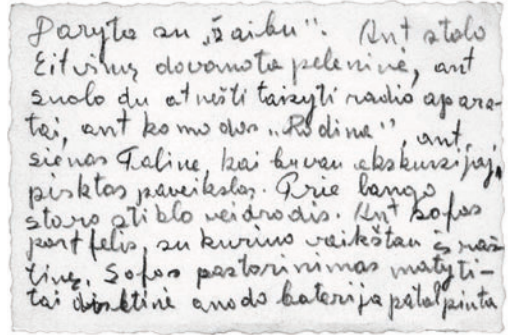 Daryta su „žaibu". Ant stalo
Eitvinų dovanota peleninė, ant
suolo du atnešti taisyti radio apara-
tai, ant komodos „Rodina", ant
sienos Taline, kai buvau ekskursijoj,
pirktas paveikslas. Prie lango
storo stiklo veidrodis. Ant sofos
portfelis, su kuriuo vaikštau į raš-
tinę. Sofos pastorinimas matyti-
tai dirbtinė anodo baterija patalpinta